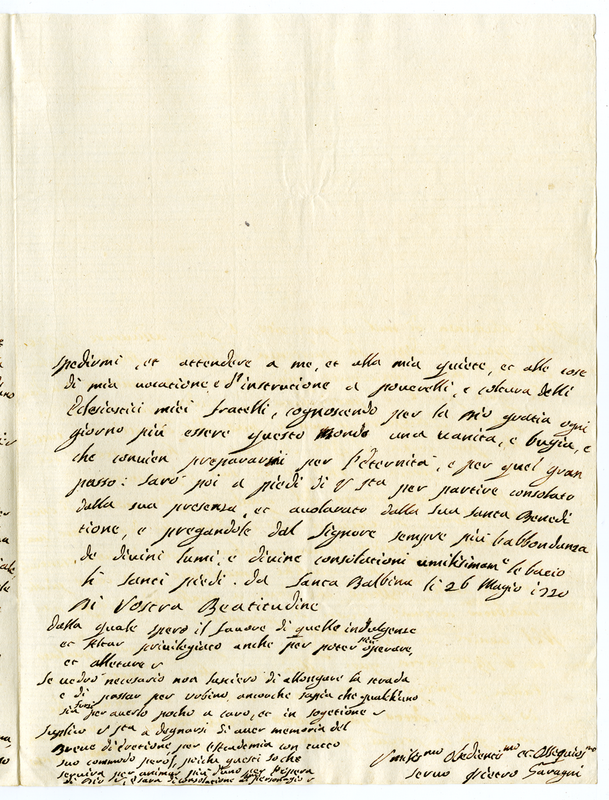 spedirmi, et attendere a me, et alla mia quiete, et alle cose
di mia vocatione e d'instrutione a poverelli, e coltura delli
Eclesiastici miei fratelli, cognoscendo per la Dio gratia ogni
giorno più essere questo mondo una vanità, e bugia, e
che convien prepararmi per l'eternità, e per quel gran
passo: sarò poi a piedi di V Stà per partire consolato
dalla sua presenza, et avalorato dalla sua santa Benedi
tione, e pregandole dal Signore sempre più l'abbondanza
de divini lumi, e divine consolationi umilissimamte le bacio
li santi piedi. da Santa Balbina li 26 Magio 1720
Di Vostra Beatitudine
dalla quale spero il favore di quelle indulgense
et altar privilegiato anche per poter più operare,
et alletare
se vedrò necesario non lasciero di allongare la strada
e di passar per urbino, ancorche sapia che qualchuno
sia forsi per averlo pocho a caro, et in sogetione
Suplico V Stà a degnarsi di aver memoria del
Breve di eretione per l'Academia con tutto
suo commodo però, poiche questi so che
servirà per animar più d'uno per l'opera
di Dio e sarà di consolatione
Umilismo Obedientmo et Ossequiosmo
servo